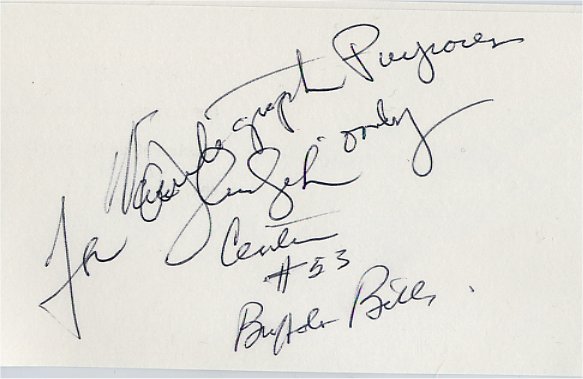 For Autograph Purposes
only
Center
#53
Buffalo Bills.